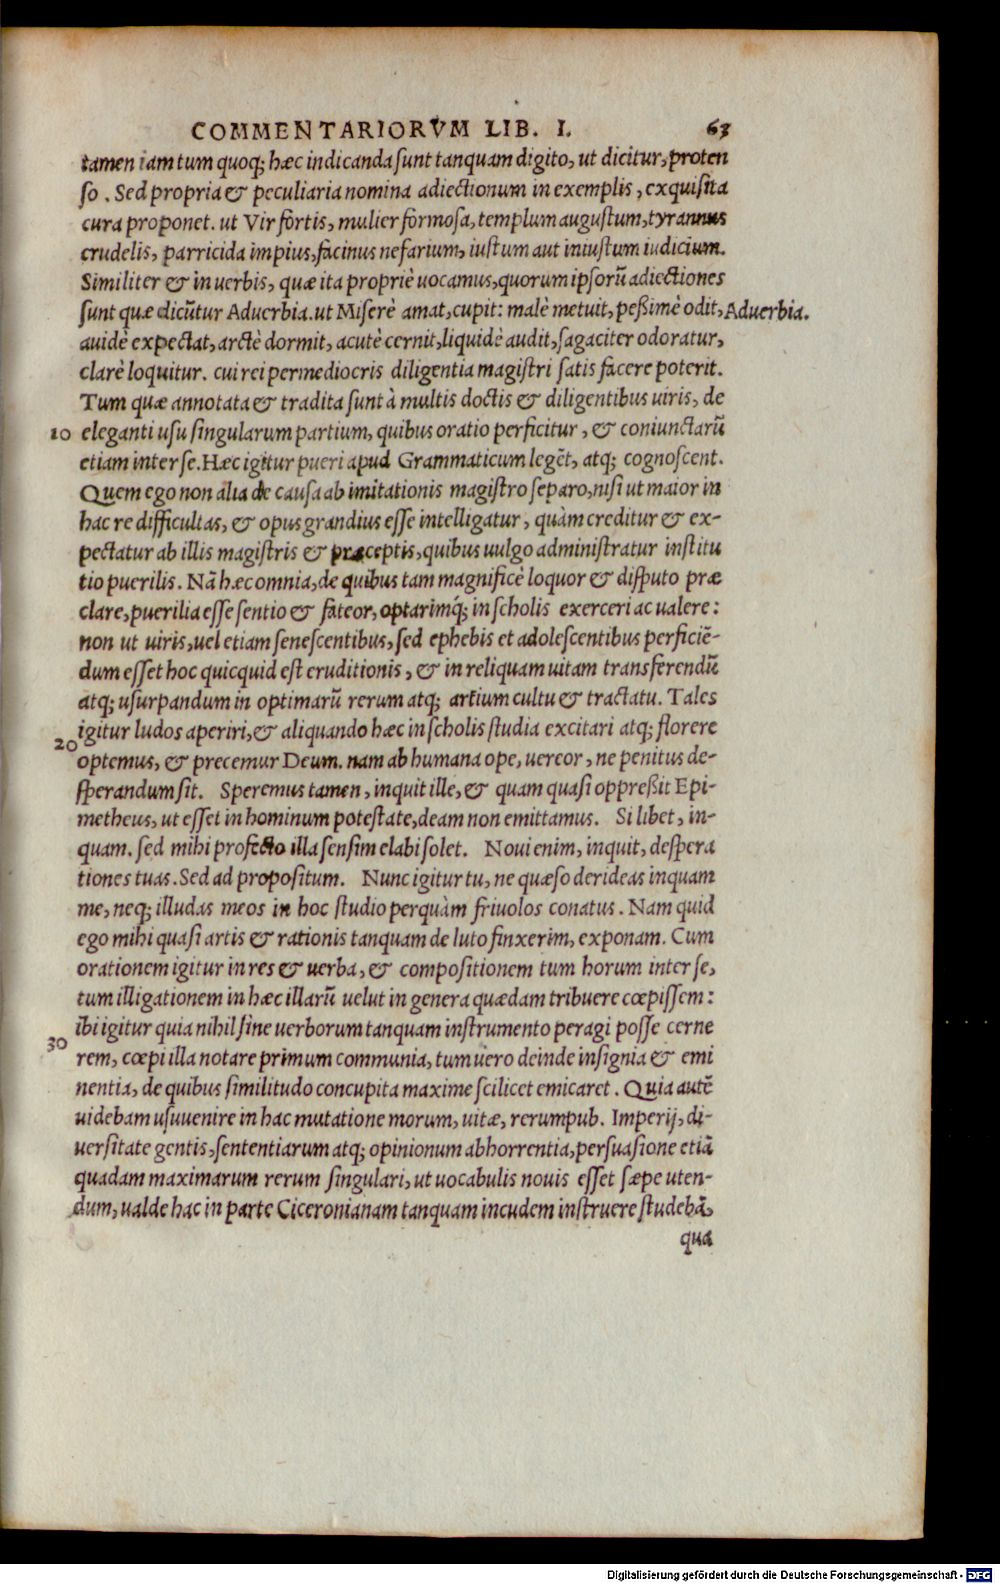 COMMENTARIORVM LIB. I. 63
tamen iam tum quoq; hæc indicanda sunt tanquam digito, ut dicitur, proten
so. Sed propria & peculiaria nomina adiectionum in exemplis, exquisita
cura proponet. ut Vir fortis, mulier formosa, templum augustum, tyrannus
crudelis, parricida impius, facinus nefarium, iustum aut iniustum iudicium.
Similiter & in uerbis, quæ ita propriè uocamus, quorum ipsorũ adiectiones
sunt quæ dicũtur Aduerbia. ut Miserè amat, cupit: malè metuit, peßimè odit, Aduerbia.
auidè expectat, arctè dormit, acutè cernit, liquidè audit, sagaciter odoratur,
clarè loquitur. cui rei permediocris diligentia magistri satis facere poterit.
Tum quæ annotata & tradita sunt à multis doctis & diligentibus uiris, de
10 eleganti usu singularum partium, quibus oratio perficitur, & coniunctarũ
etiam inter se. Hæc igitur pueri apud Grammaticum legẽt, atq; cognoscent.
Quem ego non alia de causa ab imitationis magistro separo, nisi ut maior in
hac re difficultas, & opus grandius esse intelligatur, quàm creditur & ex-
pectatur ab illis magistris & præceptis, quibus uulgo administratur institu
tio puerilis. Nã hæc omnia, de quibus tam magnificè loquor & disputo præ
clare, puerilia esse sentio & fateor, optarimq́; in scholis exerceri ac ualere:
non ut uiris, uel etiam senescentibus, sed ephebis et adolescentibus perficiẽ-
dum esset hoc quicquid est eruditionis, & in reliquam uitam transferendũ
atq; usurpandum in optimarũ rerum atq; artium cultu & tractatu. Tales
igitur ludos aperiri, & aliquando hæc in scholis studia excitari atq; florere
20 optemus, & precemur Deum. nam ab humana ope, uereor, ne penitus de-
sperandum sit. Speremus tamen, inquit ille, & quam quasi oppreßit Epi-
metheus, ut esset in hominum potestate, deam non emittamus. Si libet, in-
quam. sed mihi profecto illa sensim elabi solet. Noui enim, inquit, despera
tiones tuas. Sed ad propositum. Nunc igitur tu, ne quæso derideas inquam
me, neq; illudas meos in hoc studio perquàm friuolos conatus. Nam quid
ego mihi quasi artis & rationis tanquam de luto finxerim, exponam. Cum
orationem igitur in res & uerba, & compositionem tum horum inter se,
tum illigationem in hæc illarũ uelut in genera quædam tribuere cœpissem:
ibi igitur quia nihil sine uerborum tanquam instrumento peragi posse cerne
30 rem, cœpi illa notare primum communia, tum uero deinde insignia & emi
nentia, de quibus similitudo concupita maxime scilicet emicaret. Quia autẽ
uidebam usuuenire in hac mutatione morum, uitæ, rerumpub. Imperij, di-
uersitate gentis, sententiarum atq; opinionum abhorrentia, persuasione etiã
quadam maximarum rerum singulari, ut uocabulis nouis esset sæpe uten-
dum, ualde hac in parte Ciceronianam tanquam incudem instruere studebã,
qua
Digitalisierung gefördert durch die Deutsche Forschungsgemeinschaft - DFG